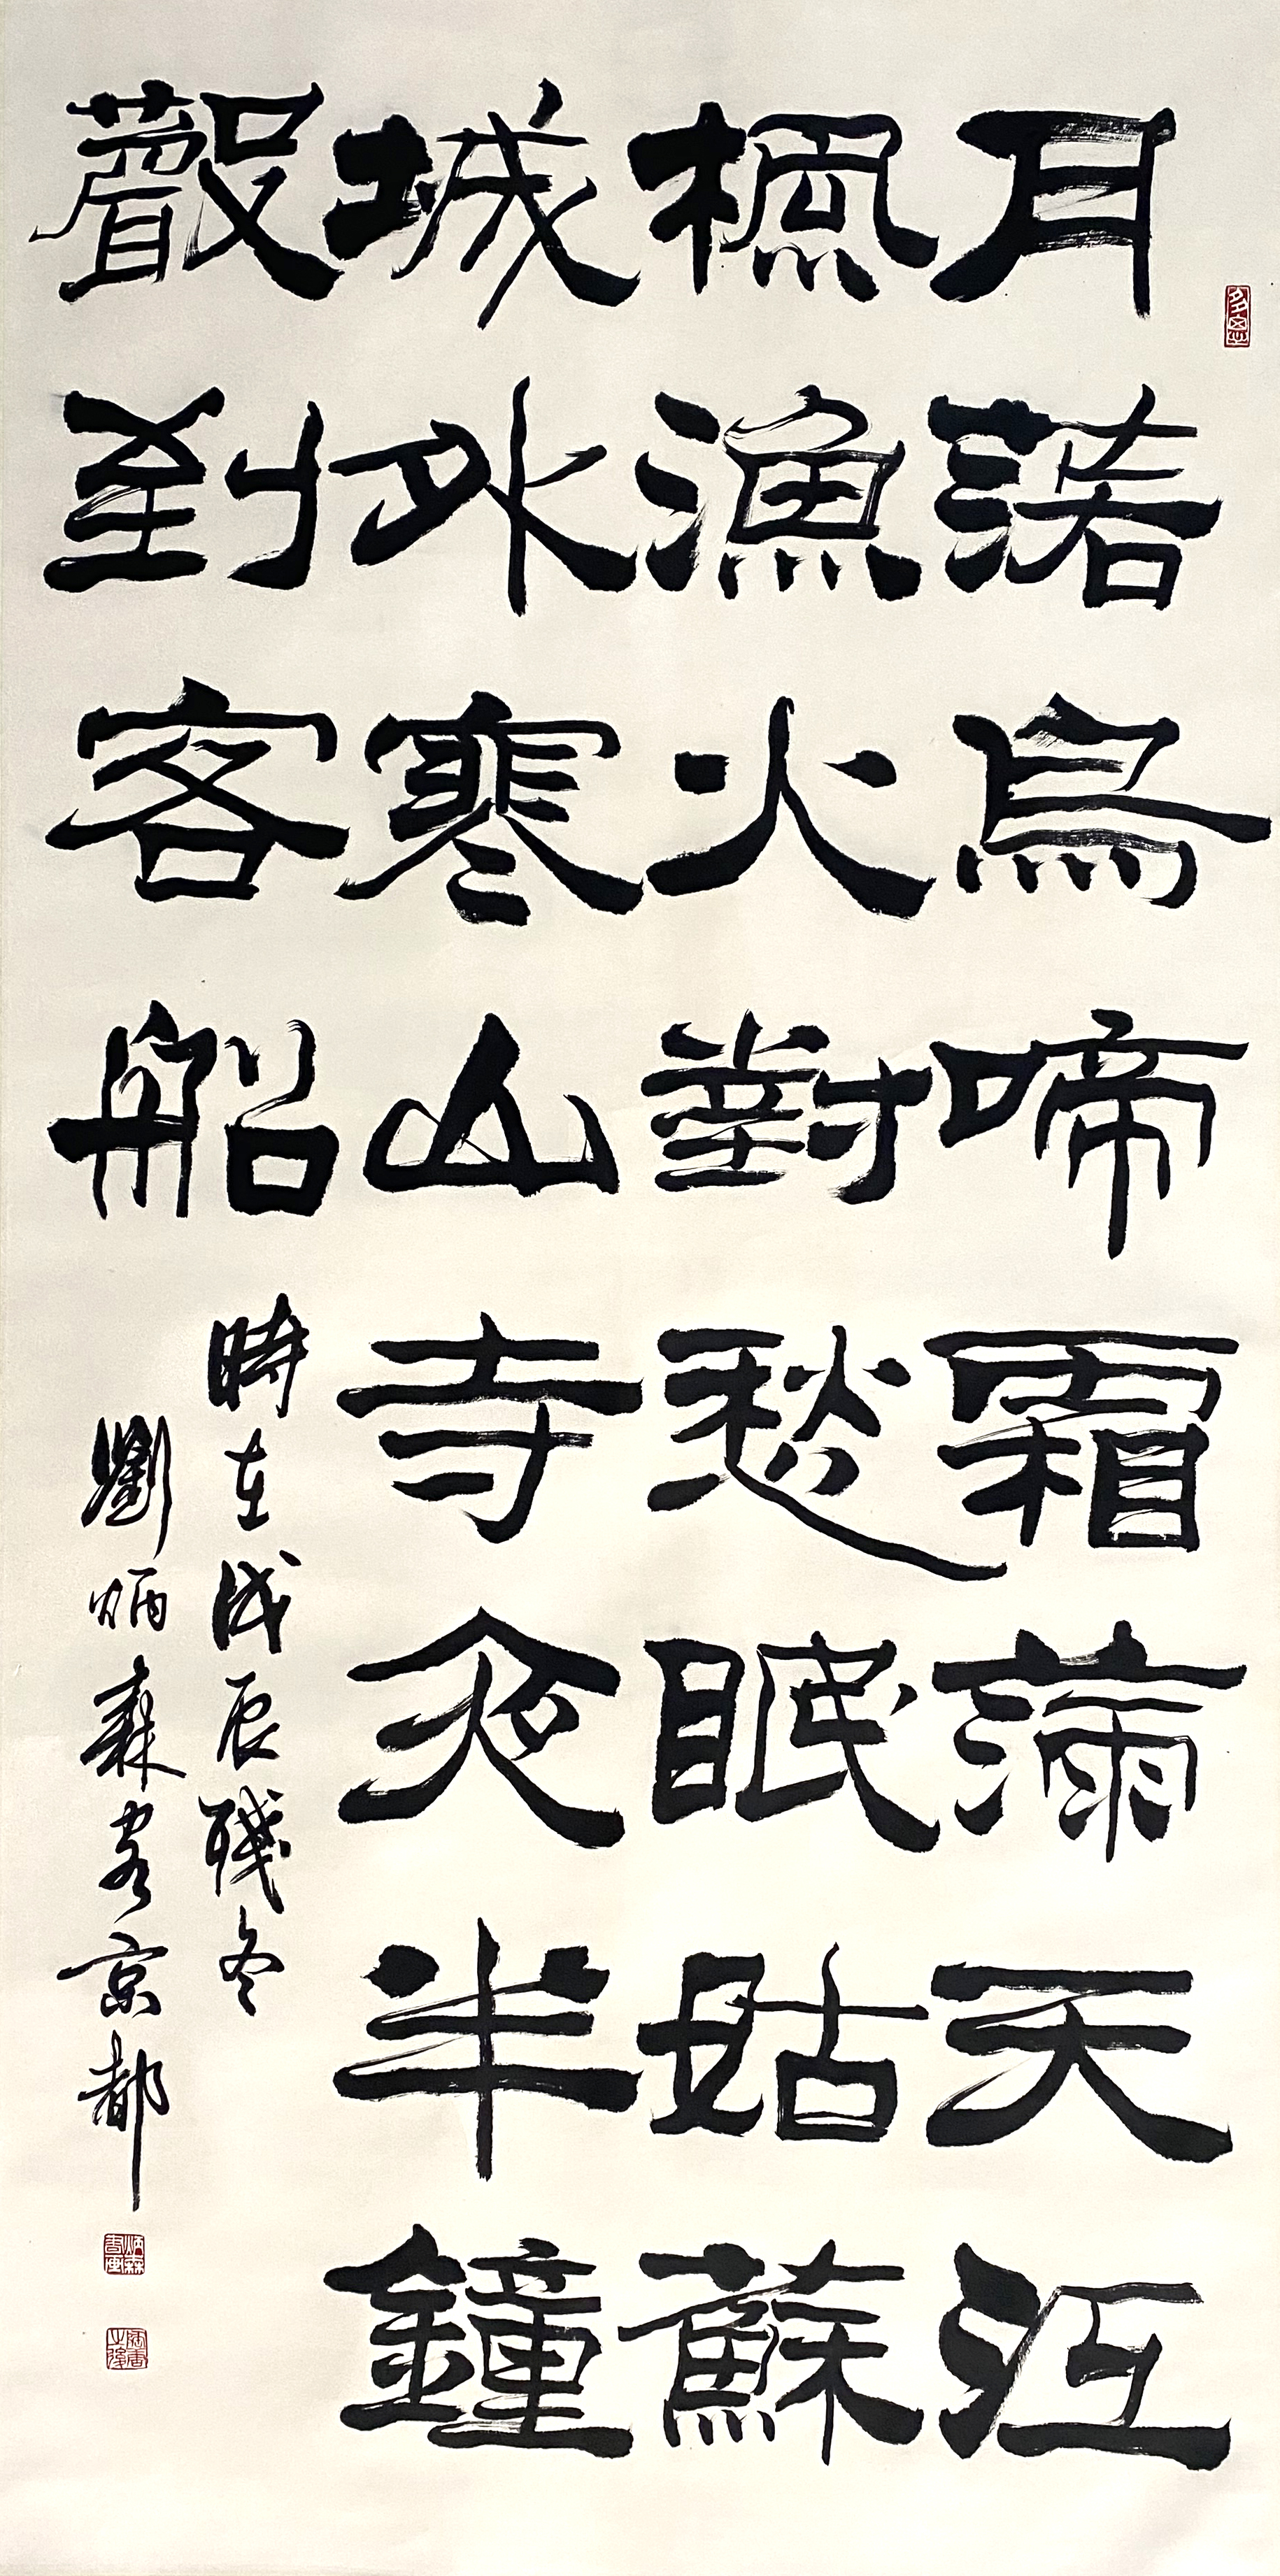 月落烏啼霜滿天江
楓漁火對愁眠姑蘇
城外寒山寺夜半鐘
聲到客船
時在戊辰殘冬
劉炳森客京都
炳森書画